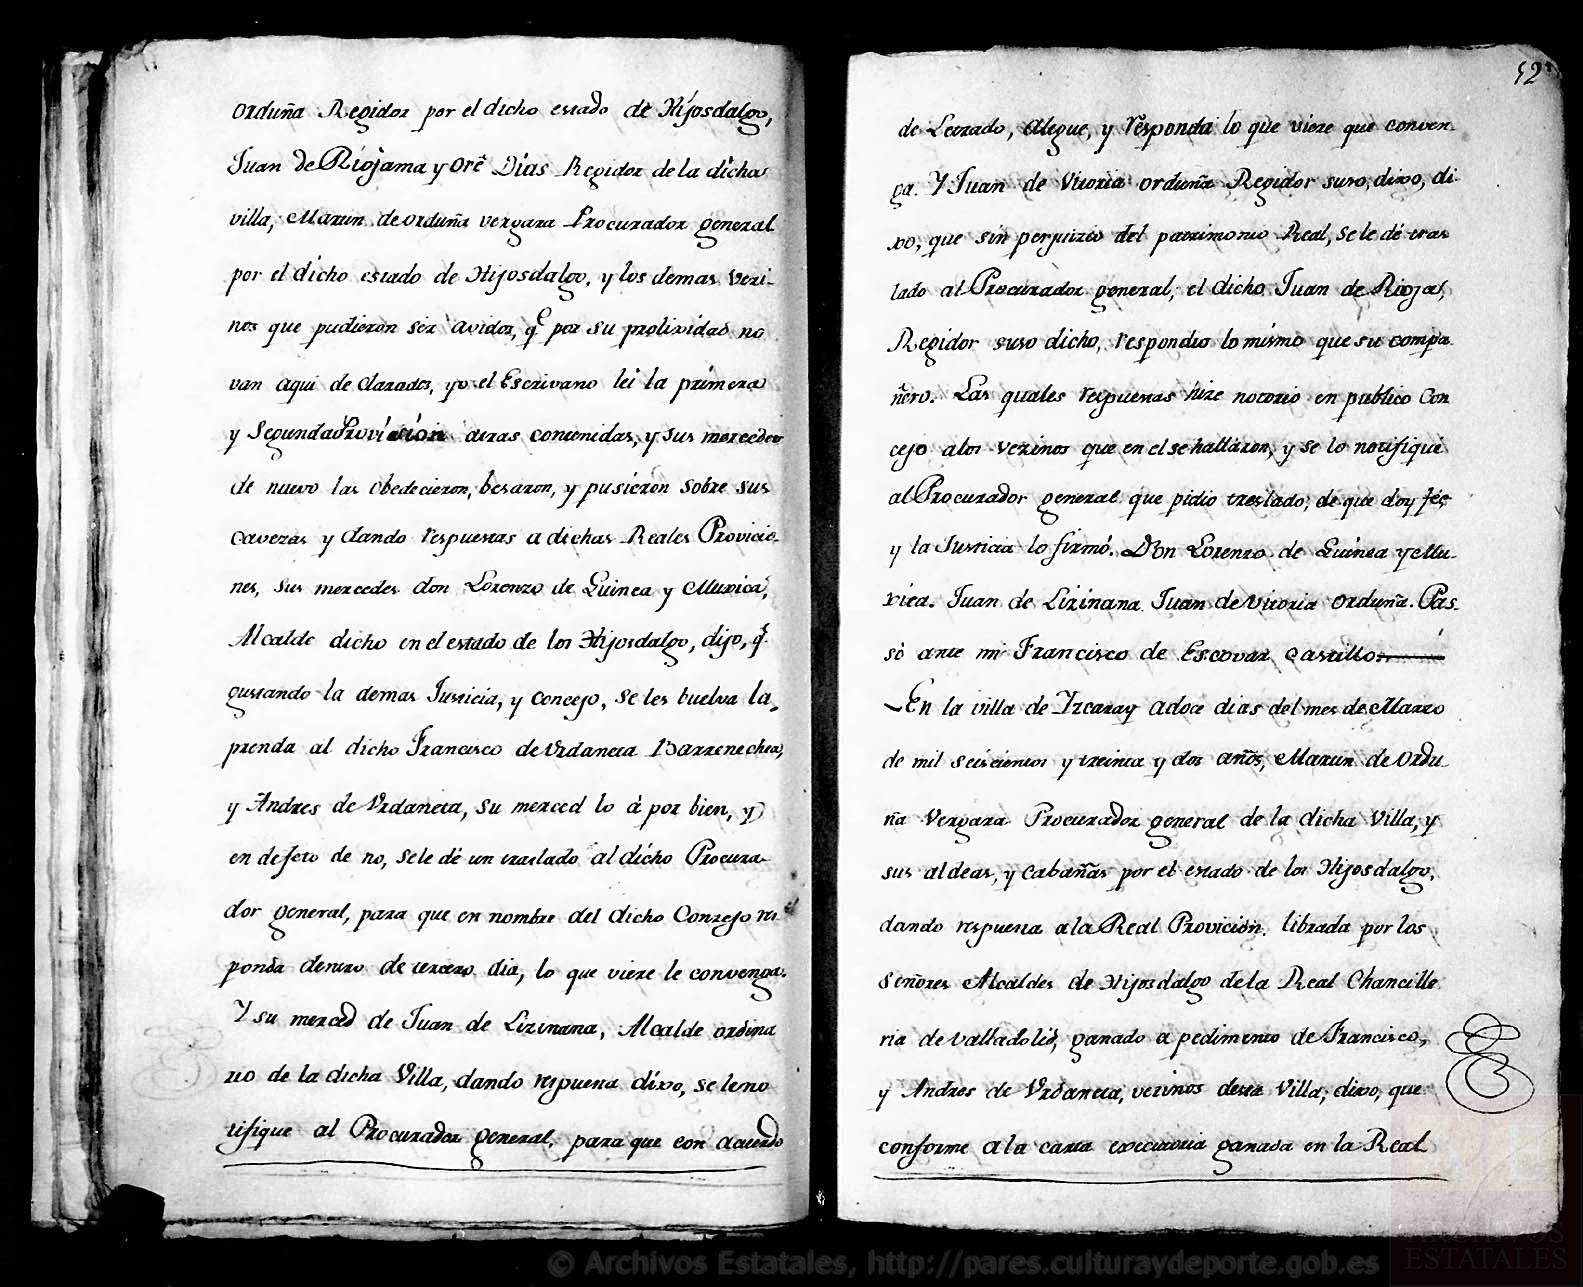 orduña Regidor por el dicho estado de Hijosdalgo,
Juan de Riojama y orē Dias Regidor de la dicha
villa, Martin de orduña vergara Procurador general
por el dicho estado de Hijosdalgo, y los demas vezi-
nos que pudieron ser avidos, q̃ por su prolixidad no
van aqui declarados, yo el Escrivano lei la primera
y Segunda Provición atras contenidas, y sus mercedes
de nuevo las obedecieron, besaron, y pusieron sobre sus
cavezas y dando respuestas a dichas Reales Provicio-
nes, sus mercedes don Lorenzo de Guinea y Muxica,
Alcalde dicho en el estado de los Hijosdalgo, dijo, q̃
gustando la demas Justicia, y concejo, se les buelva la
prenda al dicho Francisco de Vrdaneta Barrenechea,
y Andres de Vrdaneta, su merced lo à por bien, y
en defeto de no, sele dé un traslado al dicho Procura-
dor general, para que en nombre del dicho Conzejo res
ponda dentro de tercero dia, lo que viere le convenga.
Y su merced de Juan de Lizinana, Alcalde ordina
rio de la dicha Villa, dando respuesta dixo, se le no
tifique al Procurador general, para que con acuerdo
52
de Letrado, alegue, y responda lo que viere que conven
ga. Y Juan de Vitoria orduña Regidor suso dixo, di
xo, que sin perjuizio del patrimonio Real, se le dé tras
lado al Procurador general, el dicho Juan de Riojas,
Regidor suso dicho, respondio lo mismo que su compa
ñero. Las quales respuestas hize notorio en publico Con
cejo a los vezinos que en el se hallaron, y se lo notifiqué
al Procurador general que pidio treslado, de que doy fée,
y la Justicia lo firmó. Don Lorenzo de Guinea y Mu-
xica. Juan de Lizinana. Juan de Vitoria orduña. Pas-
sò ante mi Francisco de Escovar Castillo.
En la villa de Yzcaray a doce dias del mes de Marzo
de mil seiscientos y treinta y dos años, Martin de ordu
ña Vergara Procurador general de la dicha Villa, y
sus aldeas, y cabañas por el estado de los Hijosdalgo,
dando respuesta a la Real Provición librada por los
señores Alcaldes de Hijosdalgo de la Real Chancille
ria de valladolid, ganado a pedimento de Francisco,
y Andres de Vrdaneta, vezinos desta Villa, dixo, que
conforme a la carta executoria ganada en la Real
© Archivos Estatales, http://pares.culturaydeporte.gob.es
ARCHIVOS
ESTATALES